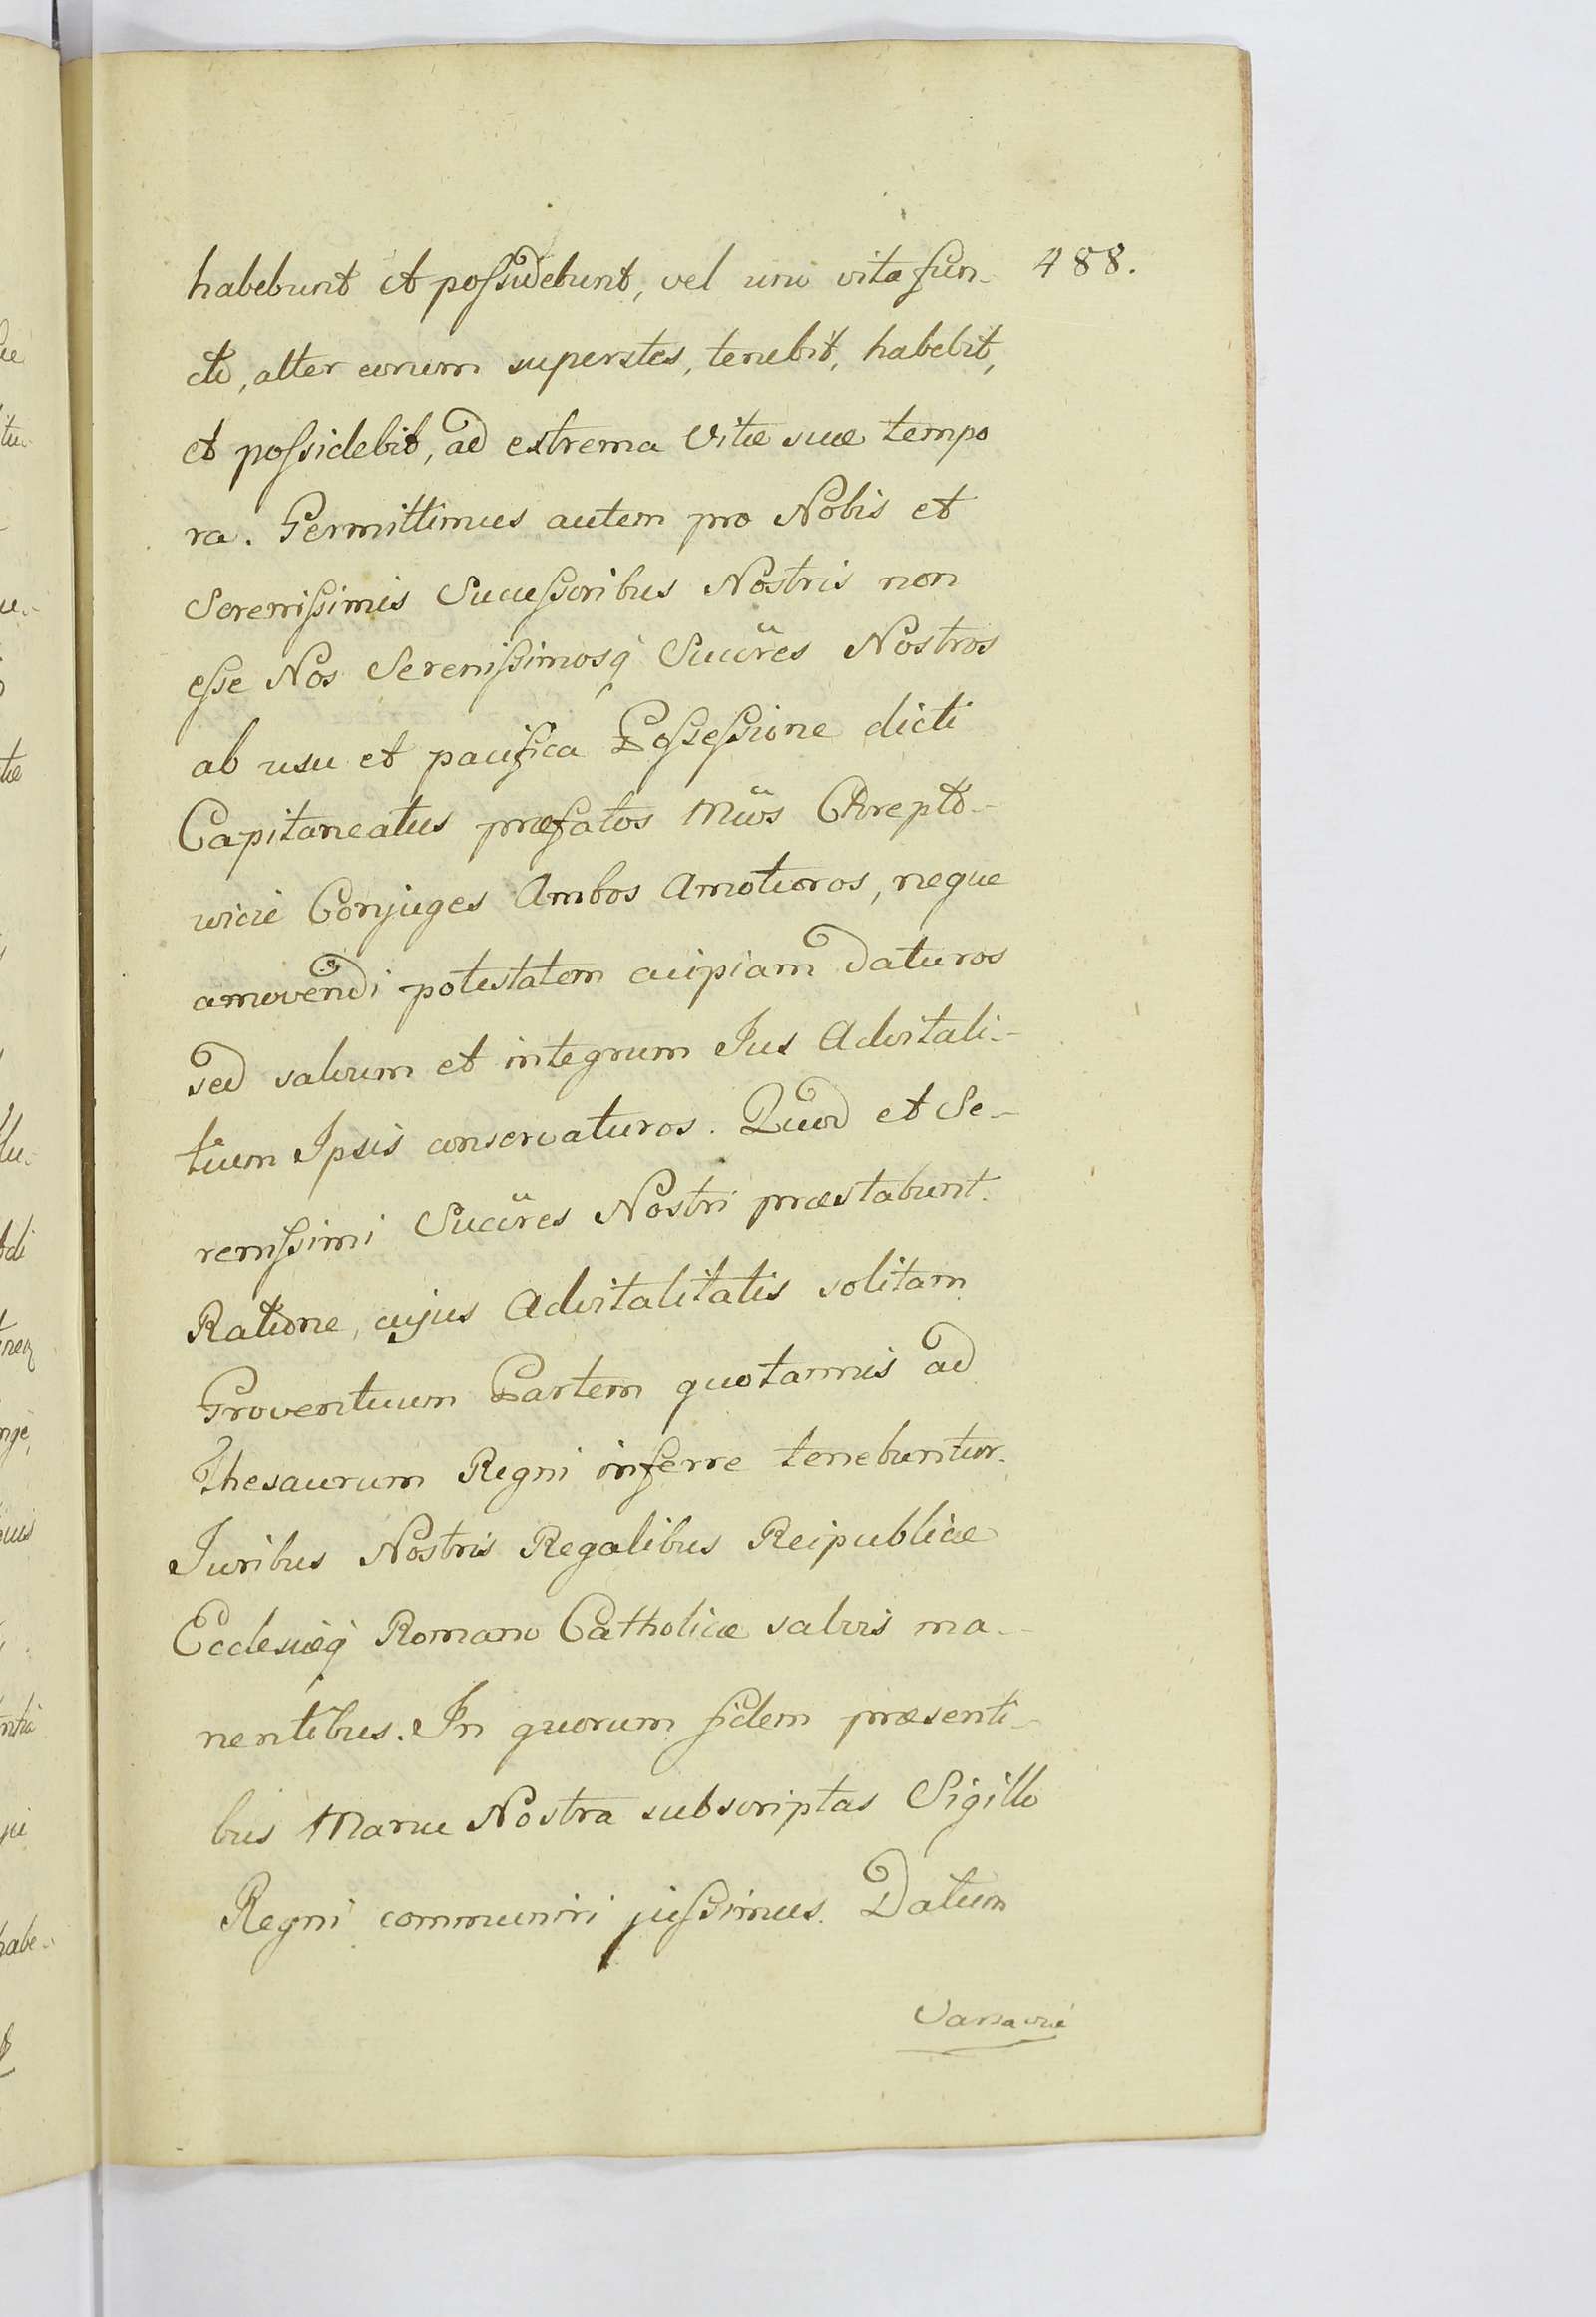 habebunt et possidebunt, vel uno vita fun- 488.
cto, alter eorum superstes, tenebit, habebit,
et possidebit, ad extrema Vitæ suæ tempo
ra. Permittimus autem pro Nobis et
Serenissimis Successoribus Nostris non
esse Nos Serenissimosq́ Succ̃res Nostros
ab usu et pacifica Possessione dicti
Capitaneatus præfatos Mcos Chrepto-
wicie Conjuges Ambos Amoturos, neque
amovendi potestatem cuipiam Daturos
sed salvum et integrum Jus Advitali-
tium Ipsis conservaturos. Quod et Se-
renissimi Succ̃res Nostri præstabunt.
Ratione, cujus Advitalitatis solitam
Proventuum Partem quotannis ad
Thesaurum Regni inferre tenebuntur.
Juribus Nostris Regalibus Reipublicæ
Ecclesiæq́ Romano Catholicæ salvis ma-
nentibus. In quorum fidem præsenti-
bus Manu Nostra subscriptas Sigillo
Regni communiri jussimus. Datum
Varsaviæ